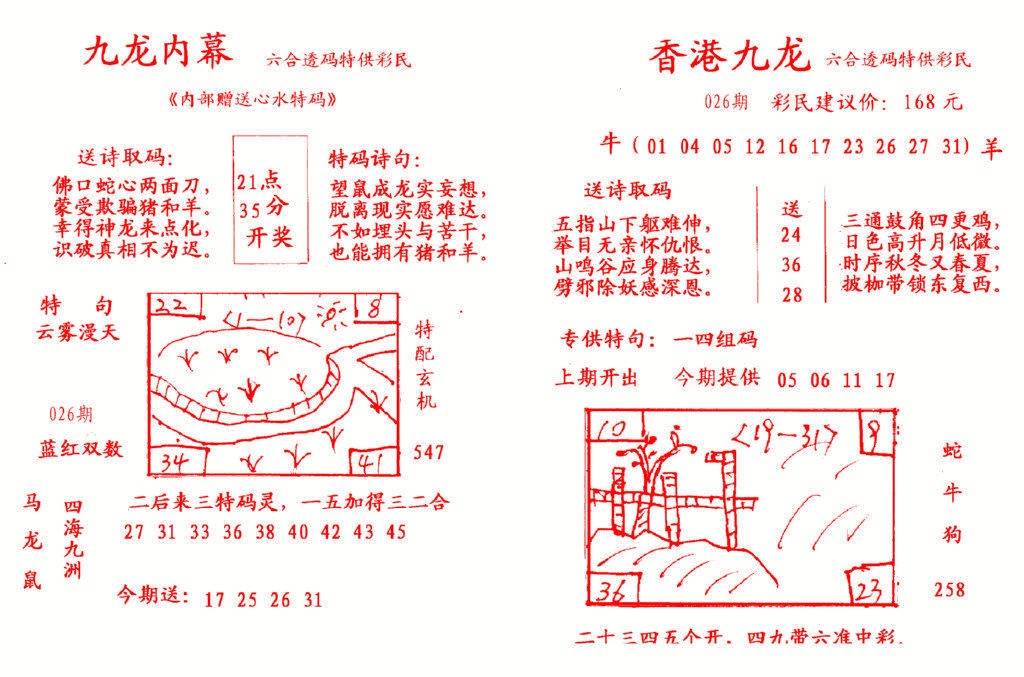 九龙内幕 六合透码特供彩民
《内部赠送心水特码》
送诗取码:
佛口蛇心两面刀,
蒙受欺骗猪和羊。
幸得神龙来点化,
识破真相不为迟。
21点
35分
开奖
特码诗句:
望鼠成龙实妄想,
脱离现实愿难达。
不如埋头与苦干,
也能拥有猪和羊。
特 句
云雾漫天
026期
蓝红双数
22
8
<1—10>
34
41
特配玄机
547
马龙鼠
四海九洲
二后来三特码灵, 一五加得三二合
27 31 33 36 38 40 42 43 45
今期送: 17 25 26 31
香港九龙 六合透码特供彩民
026期 彩民建议价: 168 元
牛 (01 04 05 12 16 17 23 26 27 31) 羊
送诗取码
五指山下躯难伸,
举目无亲怀仇恨。
山鸣谷应身腾达,
劈邪除妖感深恩。
送
24
36
28
三通鼓角四更鸡,
日色高升月低微。
时序秋冬又春夏,
披枷带锁东复西。
专供特句: 一四组码
上期开出 今期提供 05 06 11 17
10
<19—31>
9
36
23
蛇牛狗
258
二十三四五个开, 四九带六准中彩.